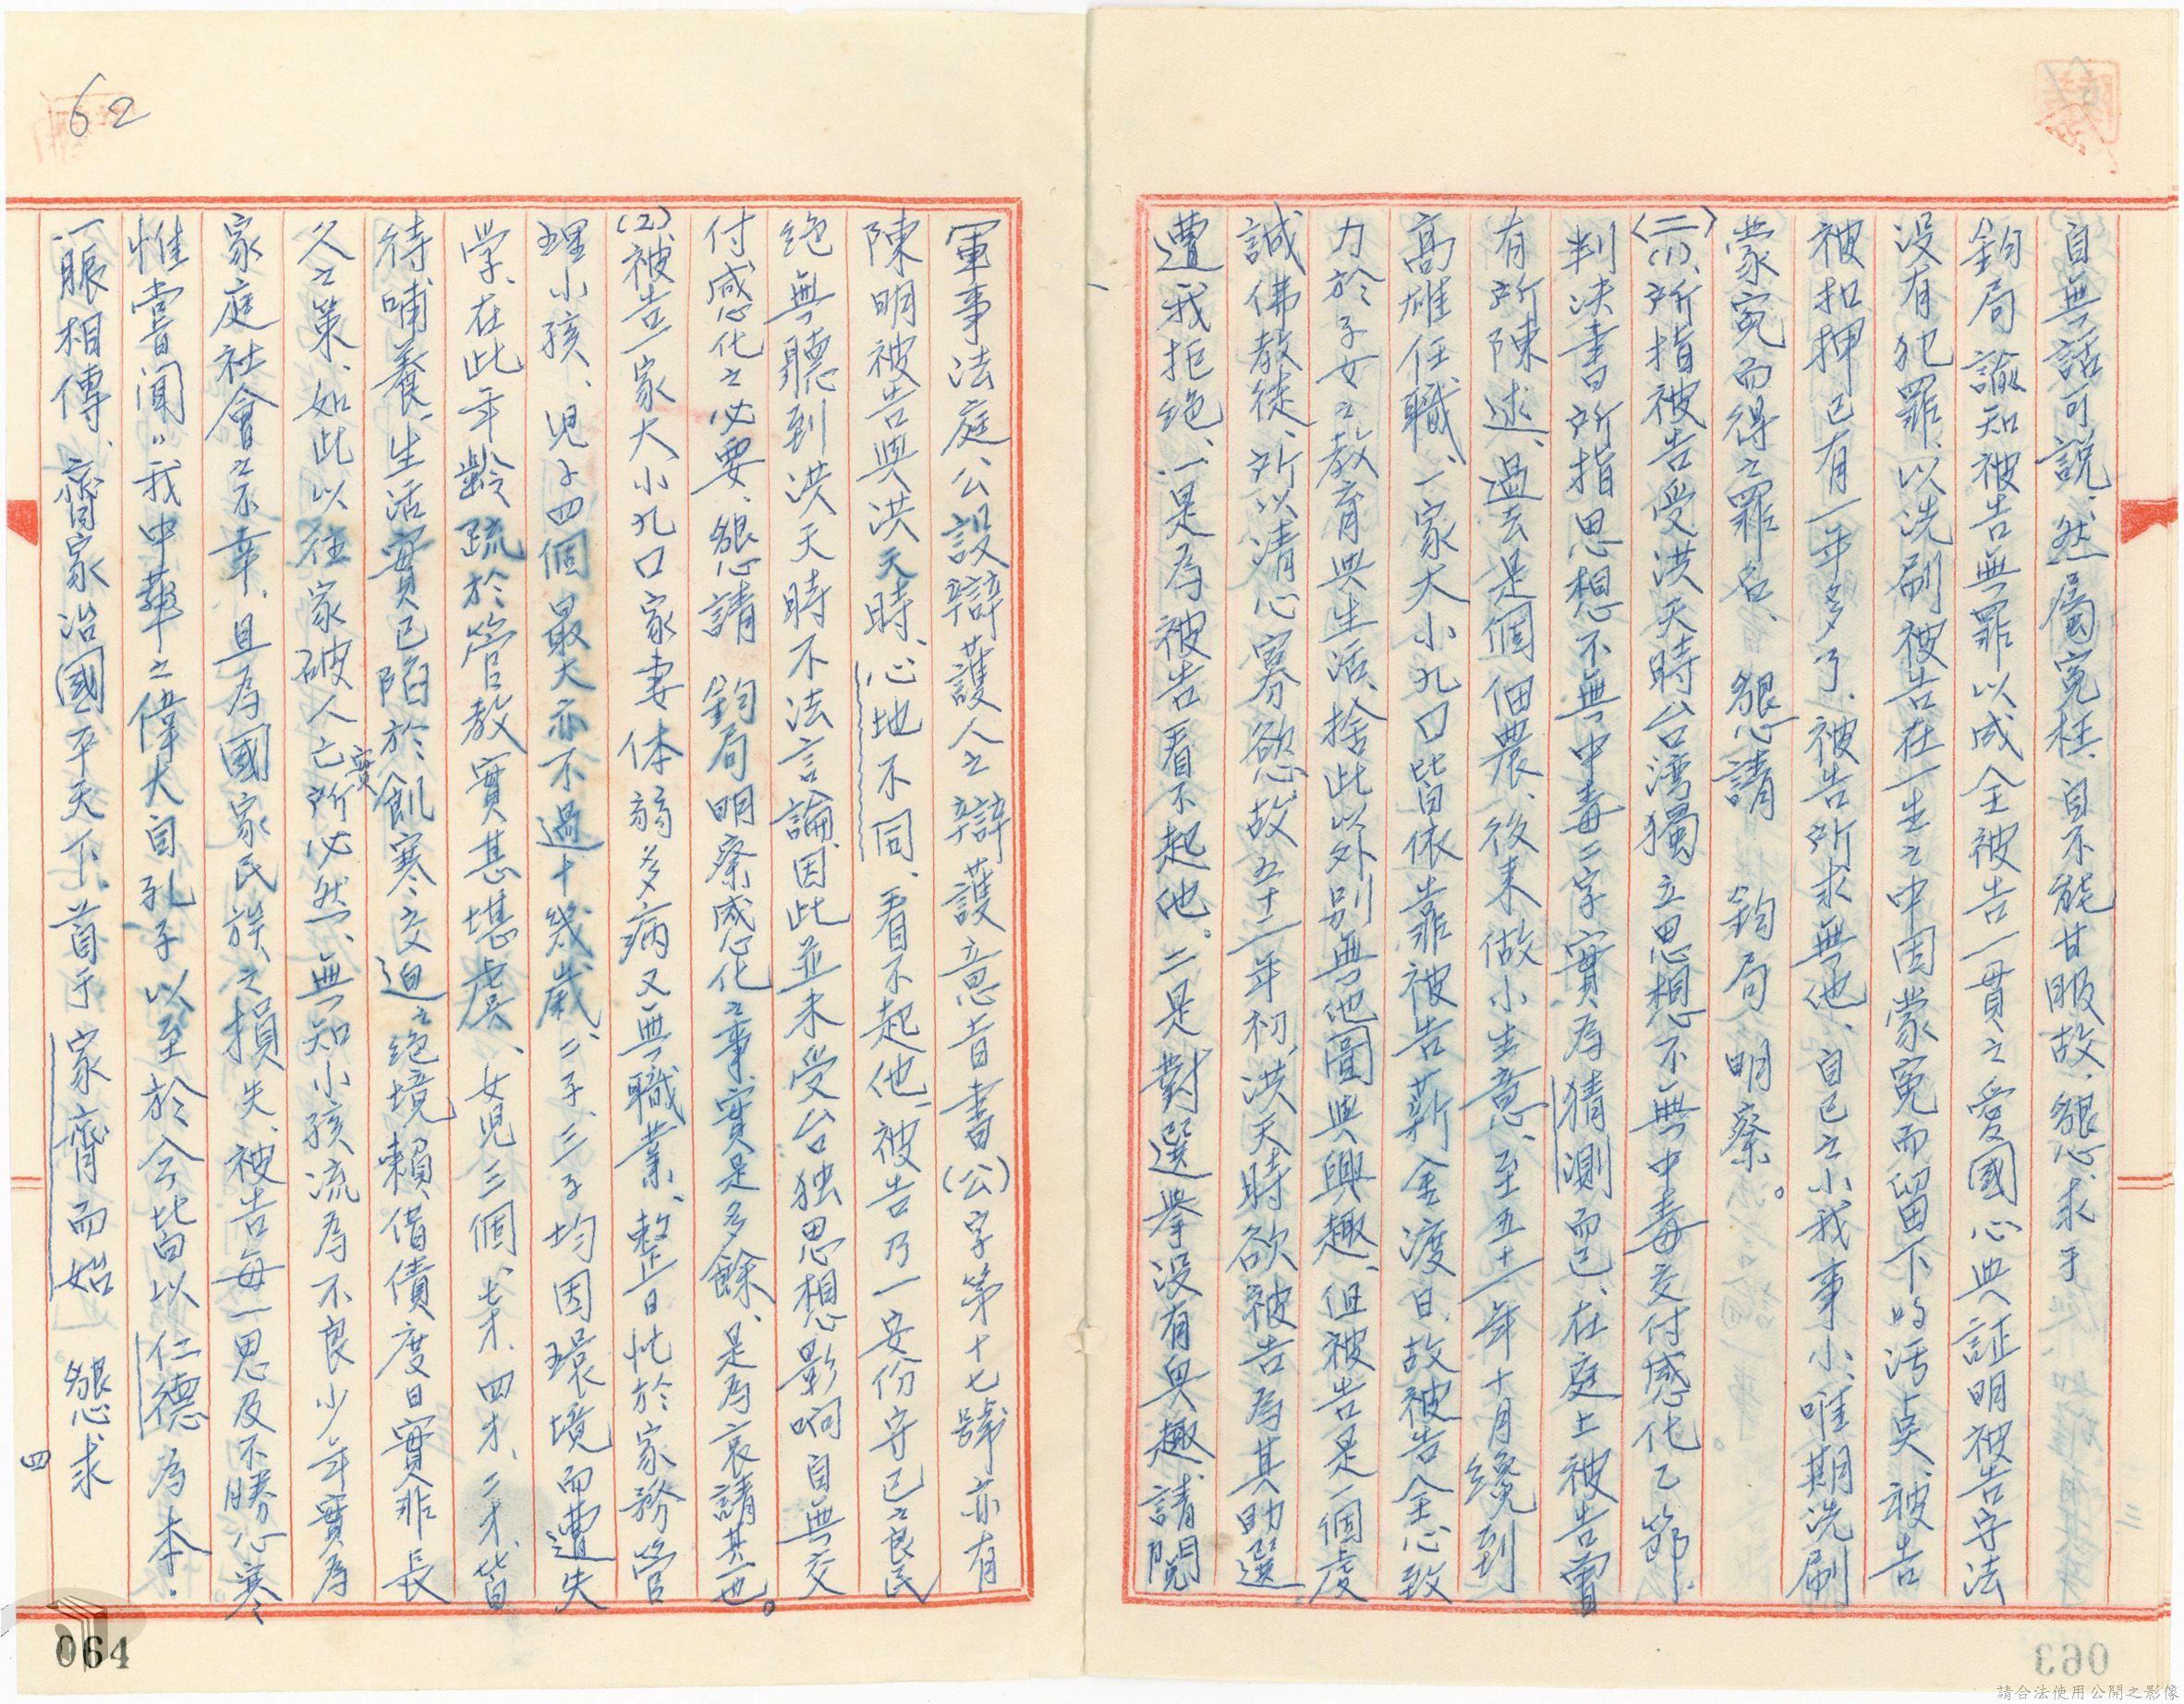 自無話可說、然屬寃枉、自不能甘服故、懇求于
鈞局諭知被告無罪以成全被告一貫之愛國心與証明被告守法
沒有犯罪、以洗刷被告在一生之中因蒙寃而留下的污臭、被告
被扣押已有一年多了、被告所求無他、自己之小我事小、唯期洗刷
蒙寃而得之罪名、懇請 鈞局 明察。
(二)(1)、所指被告受洪天時台湾獨立思想不無中毒交付感化乙節、
判決書所指思想不無中毒二字實為猜測而已、在庭上被告曾
有所陳述、過去是個佃農、後來做小生意、至五十一年十月纔到
高雄任職、一家大小九口皆依靠被告薪金渡日、故被告全心致
力於子女之教育與生活、捨此以外別無他圖與興趣、但被告是一個虔
誠佛教徒、所以清心寡慾、故五十二年初、洪天時欲被告為其助選
遭我拒絕、一是為被告看不起他。二是對選举沒有興趣、請閱
軍事法庭公設辯護人之辯護意旨書(公)字第十七號亦有
陳明被告與洪天時、心地不同、看不起他、被告乃一安份守己之良民
絕無聽到洪天時不法言論、因此並未受台独思想影响自無交
付感化之必要、懇請 鈞局明察感化之事實是多餘、是為哀請其也。
(2)被告一家大小九口家妻体弱多病又無職業、整日忙於家務管
理小孩、児子四個最大亦不過十幾歲、二子、三子均因環境而遭失
学、在此年齡疏於管教實甚堪虞、女児三個、七才、四才、二才、皆
待哺養、生活實已陷於飢寒交迫之絕境、賴借債度日實非長
久之策、如此以往家破人亡實所必然、無知小孩流為不良少年實為
家庭社會之不幸、且為國家民族之損失、被告每一思及不勝心寒
惟嘗聞“我中華之偉大自孔子以至於今皆以仁德為本.
一脹相傳、齊家治國平天下。首于家齊而始 懇求
四
62
064
063
請合法使用公開之影像